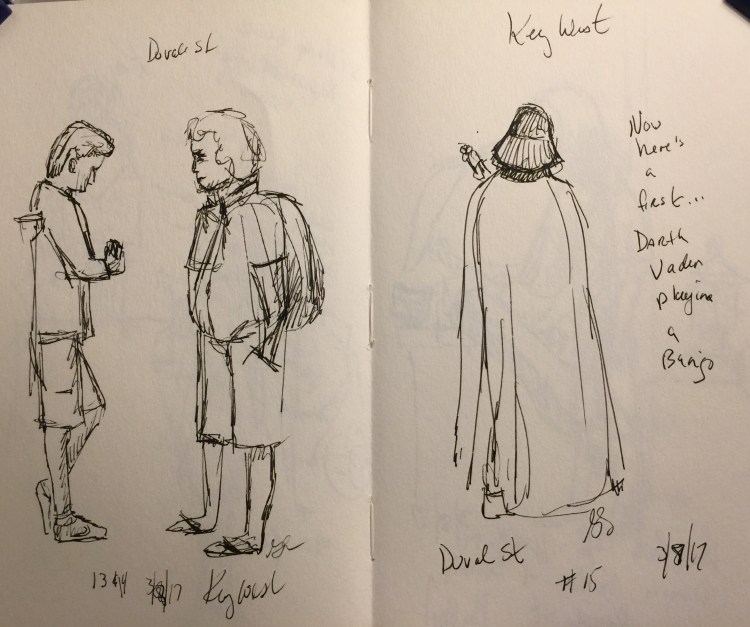 Duval St
13 & 14 3/8/17 Key West
Key West
Now
here's
a
first...
Darth
Vader
playing
a
Banjo
Duval St
#15
3/8/17